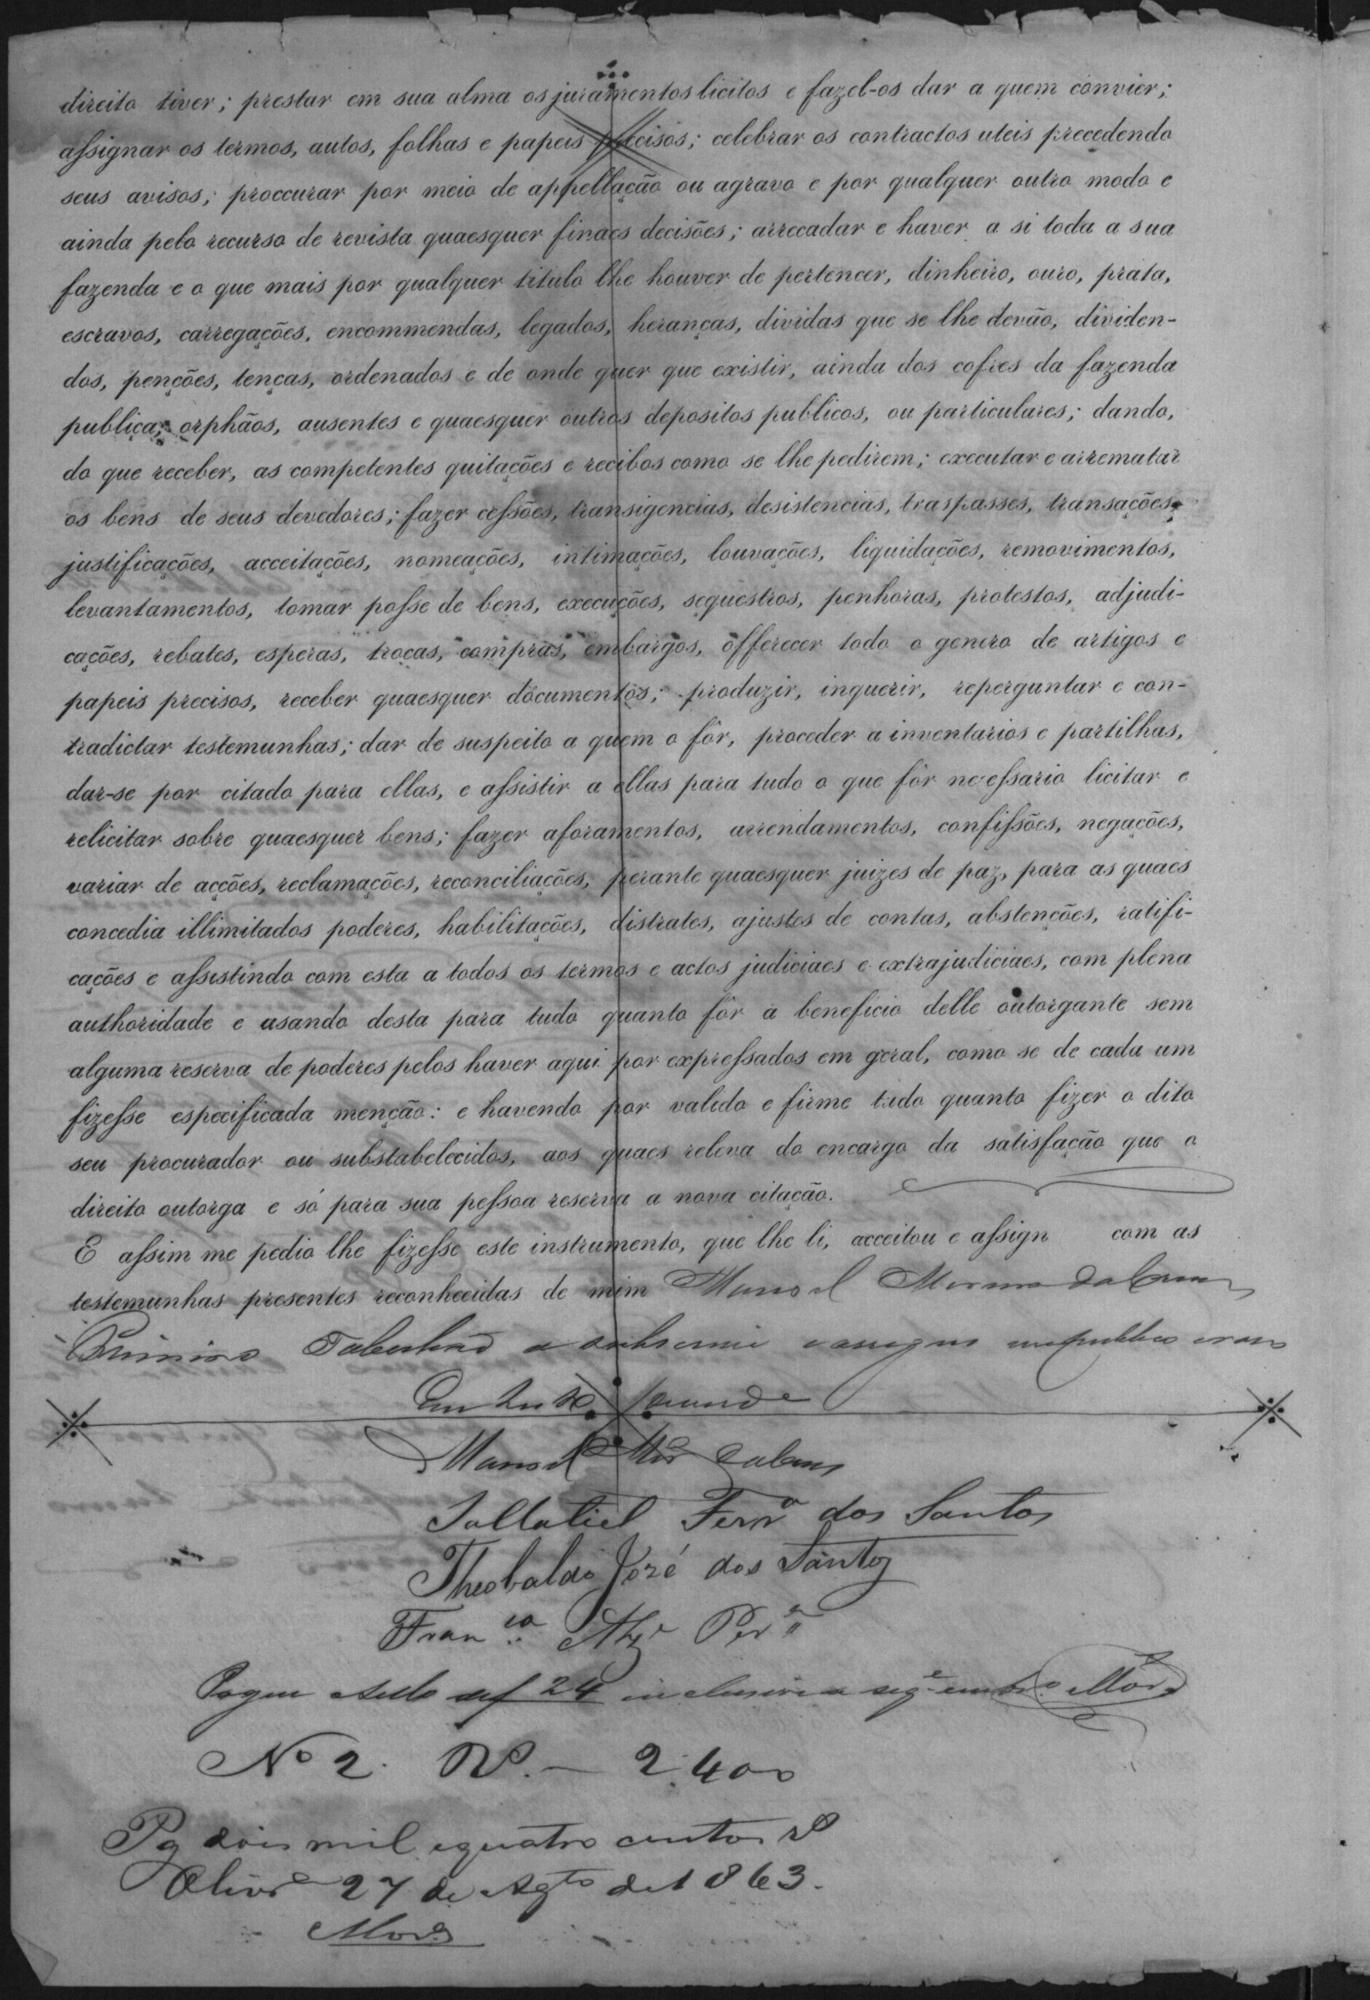 direito tiver; prestar em sua alma os juramentos licitos e fazel-os dar a quem convier;
assignar os termos, autos, folhas e papeis precisos; celebrar os contractos uteis precedendo
seus avisos; proccurar por meio de appellação ou agravo e por qualquer outro modo e
ainda pelo recurso de revista quaesquer finaes decisões; arrecadar e haver a si toda a sua
fazenda e o que mais por qualquer titulo lhe houver de pertencer, dinheiro, ouro, prata,
escravos, carregações, encommendas, legados, heranças, dividas que se lhe devão, dividen-
dos, penções, tenças, ordenados e de onde quer que existir, ainda dos cofres da fazenda
publica, orphãos, ausentes e quaesquer outros depositos publicos, ou particulares; dando,
do que receber, as competentes quitações e recibos como se lhe pedirem; executar e arrematar
os bens de seus devedores; fazer cessões, transigencias, desistencias, traspasses, transações,
justificações, acceitações, nomeações, intimações, louvações, liquidações, removimentos,
levantamentos, tomar posse de bens, execuções, sequestros, penhoras, protestos, adjudi-
cações, rebates, esperas, trocas, compras, embargos, offerecer todo o genero de artigos e
papeis precisos, receber quaesquer documentos; produzir, inquerir, reperguntar e con-
tradictar testemunhas; dar de suspeito a quem o fôr, proceder a inventarios e partilhas,
dar-se por citado para ellas, e assistir a ellas para tudo o que fôr necessario licitar e
relicitar sobre quaesquer bens; fazer aforamentos, arrendamentos, confissões, negações,
variar de acções, reclamações, reconciliações, perante quaesquer juizes de paz, para as quaes
concedia illimitados poderes, habilitações, distrates, ajustes de contas, abstenções, ratifi-
cações e assistindo com esta a todos os termos e actos judiciaes e extrajudiciaes, com plena
authoridade e usando desta para tudo quanto fôr a beneficio delle outorgante sem
alguma reserva de poderes pelos haver aqui por expressados em geral, como se de cada um
fizesse especificada menção: e havendo por valido e firme tudo quanto fizer o dito
seu procurador ou substabelecidos, aos quaes releva do encargo da satisfação que o
direito outorga e só para sua pessoa reserva a nova citação.
E assim me pedio lhe fizesse este instrumento, que lhe li, acceitou e assign com as
testemunhas presentes reconhecidas de mim Manoel
Tabelião
Manoel
Sallatiel Ferr.a dos Santos
Theobaldo José dos Santos
Fran.co Alz.e Per.a
24
No 2. Rs. — 2:400
Pg dois mil e quatro centos rs
Olivr.a 27 de Agto de 1863.